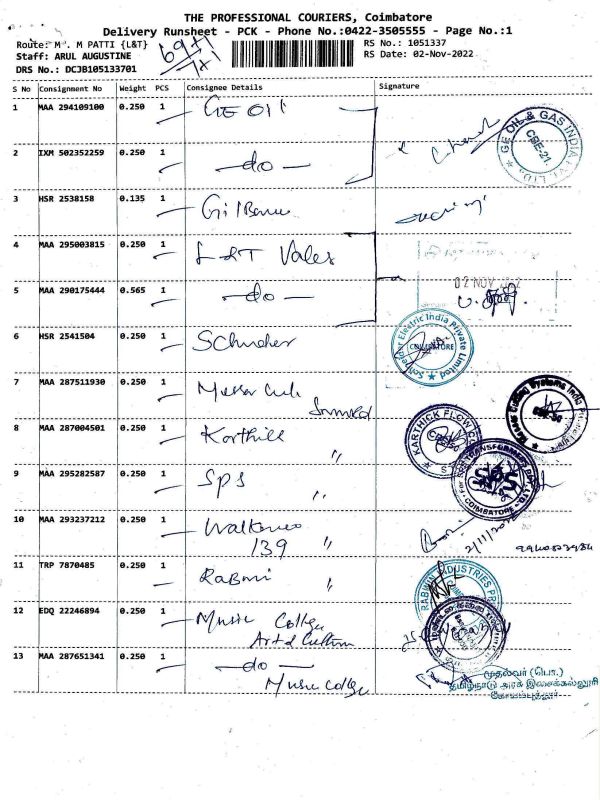 THE PROFESSIONAL COURIERS, Coimbatore
Delivery Runsheet - PCK - Phone No.:0422-3505555 - Page No.:1
Route: M . M PATTI {L&T}
RS No.: 1051337
Staff: ARUL AUGUSTINE
RS Date: 02-Nov-2022
DRS No.: DCJB105133701
69+1
S No Consignment No Weight PCS Consignee Details Signature
1 MAA 294109100 0.250 1 GE Oil
GE OIL & GAS INDIA PVT LTD.
CBE-21.
2 IXM 502352259 0.250 1 -do-
3 HSR 2538158 0.135 1
4 MAA 295003815 0.250 1 L&T Vales
02 NOV
5 MAA 290175444 0.565 1 -do-
6 HSR 2541504 0.250 1
Electric India Private Limited
COIMBATORE
7 MAA 287511930 0.250 1
Systems India
8 MAA 287004501 0.250 1 Karthik "
KARTHICK FLOW
9 MAA 295282587 0.250 1 Sps "
TRANSFORMERS PVT. LTD.
SPS
COIMBATORE
10 MAA 293237212 0.250 1
139 "
2/11/2022
11 TRP 7870485 0.250 1 "
INDUSTRIES
12 EDQ 22246894 0.250 1 Music College
Art & Culture
13 MAA 287651341 0.250 1 -do-
Music College
முதல்வர் (பொ.)
தமிழ்நாடு அரசு இசைக்கல்லூரி
கோயம்புத்தூர்